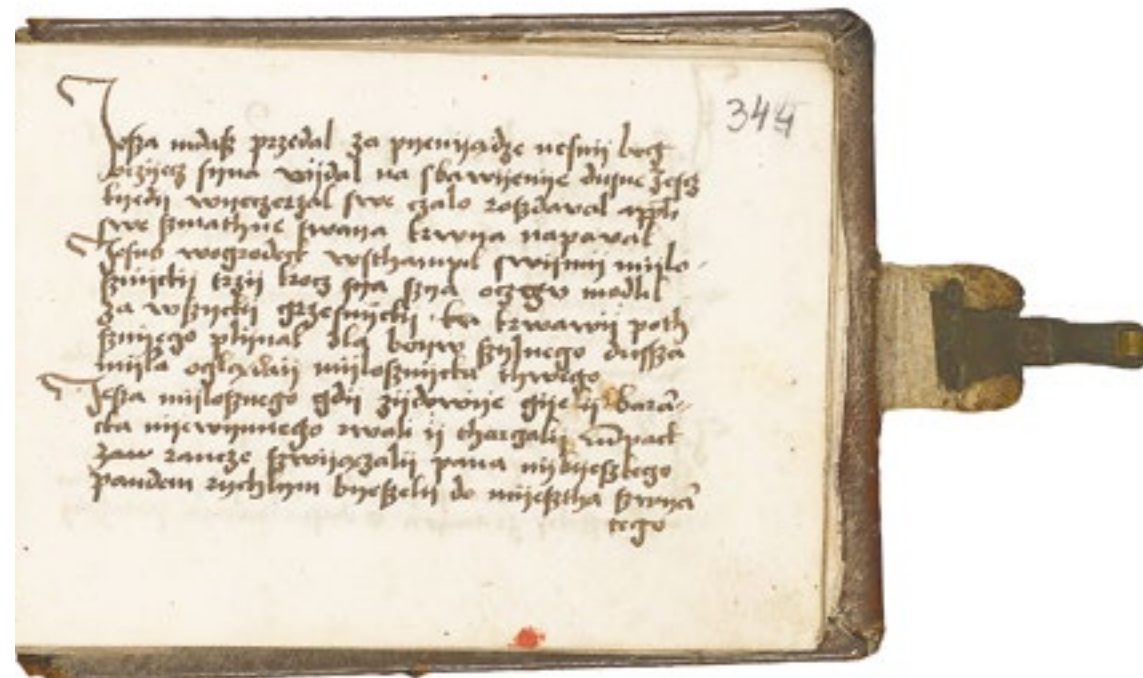 344
Jesza iudasz przedal za pyenyądze nesmij bog
oczijecz sijna wijdal na sbawijenije dusne Jescz
kijedij wijeczerzal swe czalo roszdaval appli
swe szmathne swaya krwya napaval
Jesus wogrodecz wsthampil swijmij mijlo
sznijckij trzij krocz sija szija oczgv modlil
za wszijckij grzesnijckij krwawij poth
sznijego plijnal dla boijw szijlnego dussza
mijla oglądaij mijlosznijcka thwego
Jesza mijlosznego gdij zijdowije gijelij baran
cka nijewijnnego rwali ij thargalij
rancze szwijązalij pana nijbijeskego
pandem rijchlijm bijeszelij do mijesztha szwija
tego